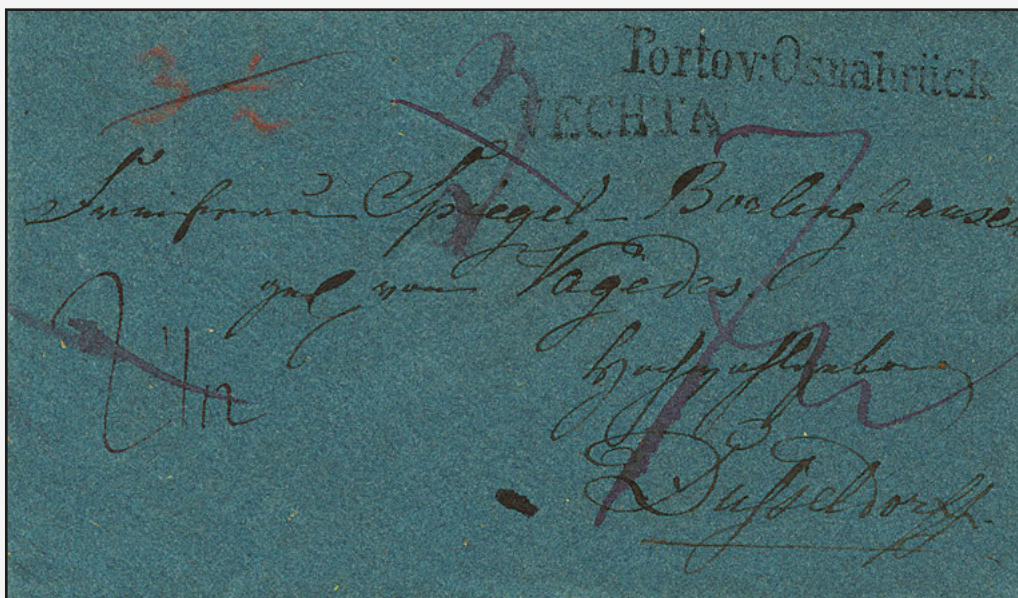 Porto v: Osnabrück
VECHTA
3 1/2
Freifrau Spiegel-Borlinghausen
geb von Vagedes
Hochwohlgeboren
Düsseldorff